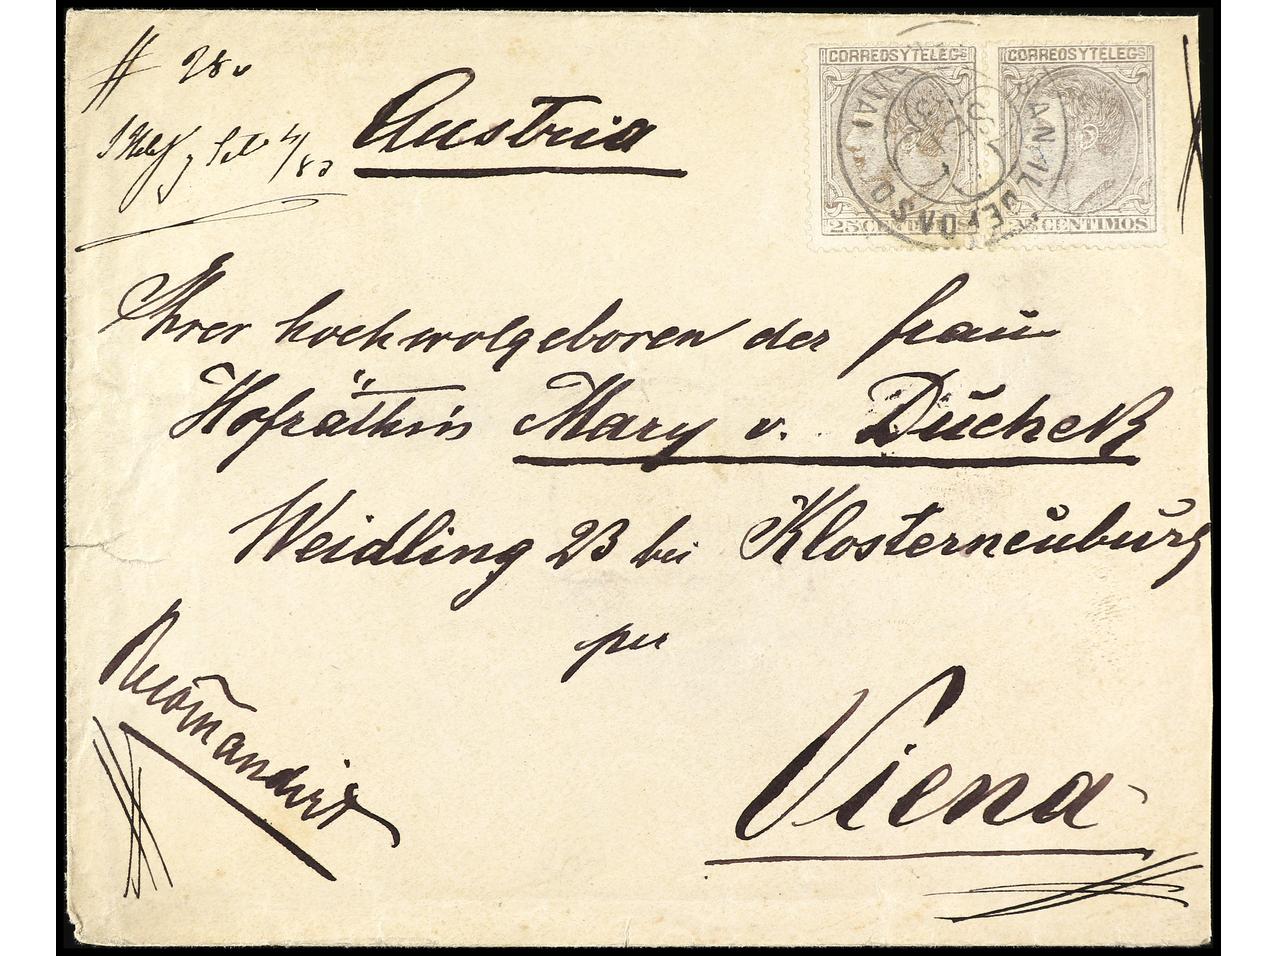 # 28
Austria
CORREOS Y TELEGS
CORREOS Y TELEGS
25 CENTIMOS
25 CENTIMOS
Ihrer hochwolgeboren der frau
Hofräthin Mary v. Dŭchek
Weidling 23 bei Klosterneŭbŭrg
per
Viena
Recom̄andirt